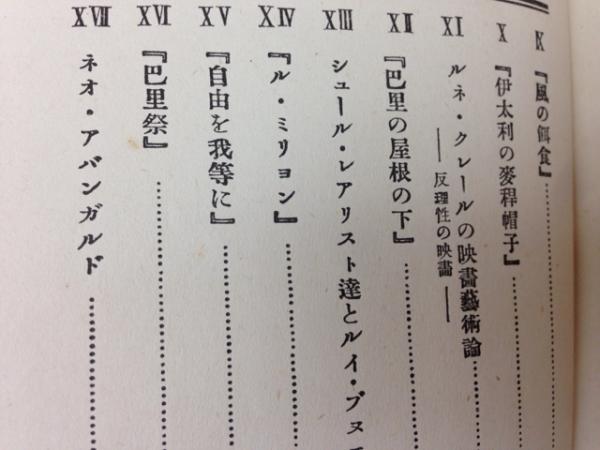 Ⅸ 『風の餌食』
Ⅹ 『伊太利の麥稈帽子』
ⅩⅠ ルネ・クレールの映畫藝術論
── 反理性の映畫 ──
ⅩⅡ 『巴里の屋根の下』
ⅩⅢ シュール・レアリスト達とルイ・ブヌ
ⅩⅣ 『ル・ミリョン』
ⅩⅤ 『自由を我等に』
ⅩⅥ 『巴里祭』
ⅩⅦ ネオ・アバンガルド